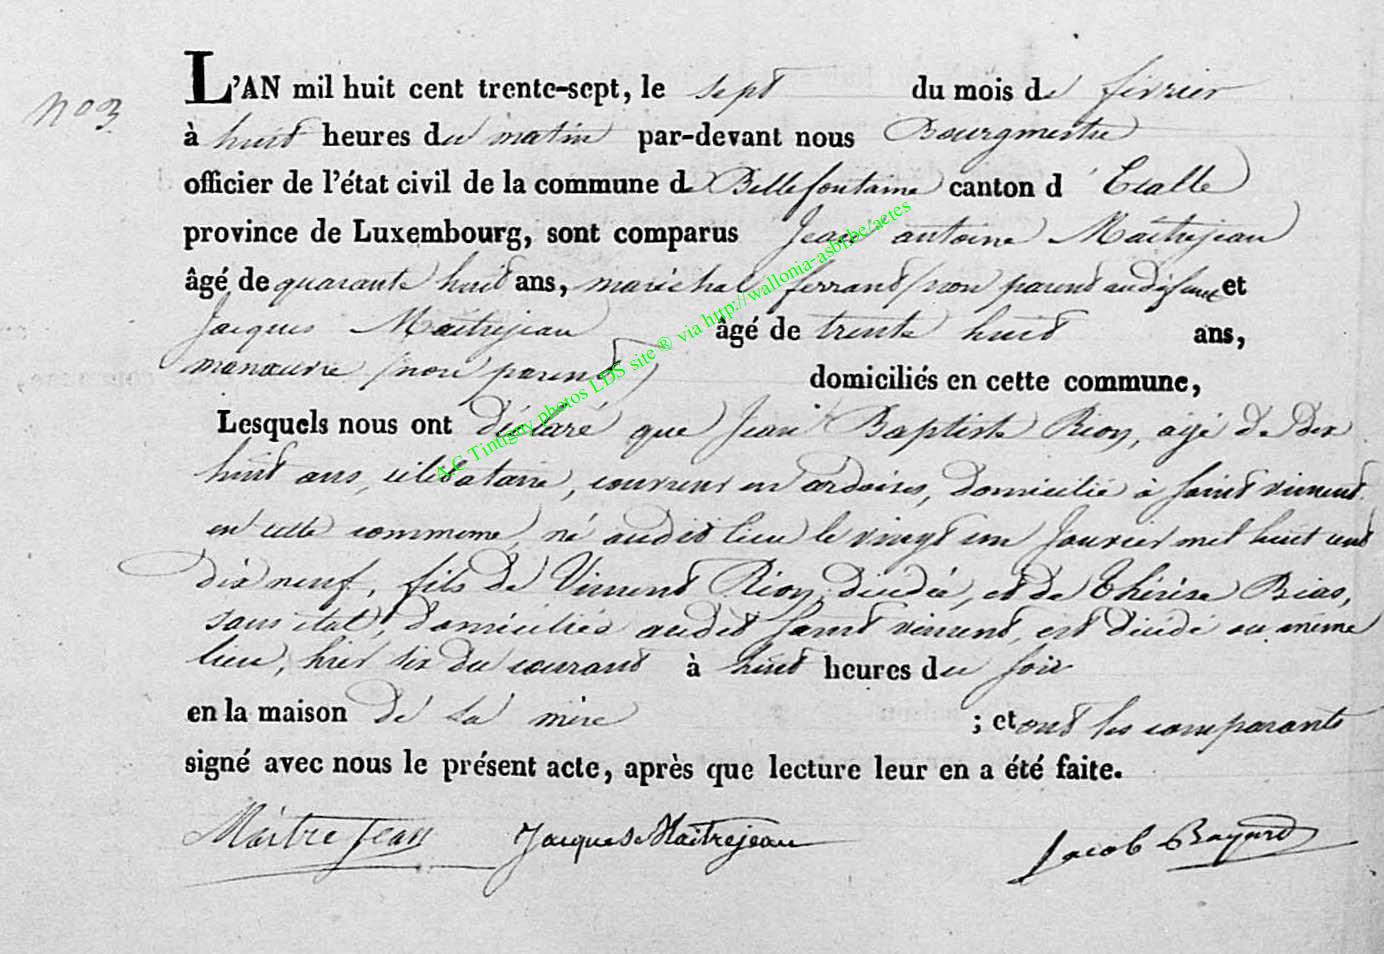 No 3
L'AN mil huit cent trente-sept, le sept du mois de février
à huit heures du matin par-devant nous Bourgmestre
officier de l'état civil de la commune de Bellefontaine canton d'Etalle
province de Luxembourg, sont comparus Jean antoine Maitrejean
âgé de quarante huit ans, maréchal ferrant (non parent au défunt et
Jacques Maitrejean âgé de trente huit ans,
manœuvre (non parent) domiciliés en cette commune,
Lesquels nous ont déclaré que Jean Baptiste Rion, agé de Dix
huit ans, célibataire, couvreur en ardoises, domicilié à Saint vincent
en cette commune, né audit lieu le vingt un Janvier mil huit cent
dix neuf, fils de Vincent Rion, décédé, et de Thérèse Bias,
sans état, domiciliés audit Saint vincent, est décédé au même
lieu, hier six du courant à huit heures du soir
en la maison de sa mère ; et ont les comparants
signé avec nous le présent acte, après que lecture leur en a été faite.
Maitre Jean Jacques Maitrejean Jacob Bayard
A.C Tintigny photos LDS site ® via http://wallonia-asbl.be/actes